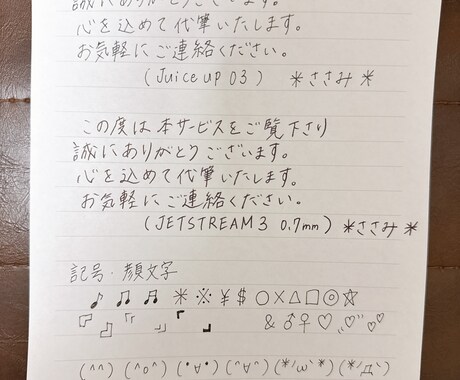 誠にありがとうございます。
心を込めて代筆いたします。
お気軽にご連絡ください。
(Juice up 03) *ささみ*
この度は本サービスをご覧下さり
誠にありがとうございます。
心を込めて代筆いたします。
お気軽にご連絡ください。
(JETSTREAM 3 0.7mm) *ささみ*
記号・顔文字
♪ ♫ ♬ * ※ ¥ $ ○ × △ □ ◎ ☆
『 』 「 」 & ♂ ♀ ♡
(^^) (^o^) (•∀•) (^∀^) (*'ω`*) (*'Д`)